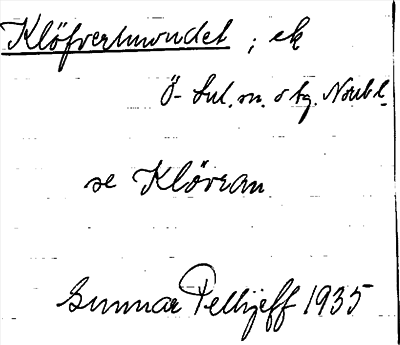 Klöfvertmrundet ; ek
Ö- Lul. sn. o tg. Norrb l.
se Klöveran
Gunnar Pellijeff 1935